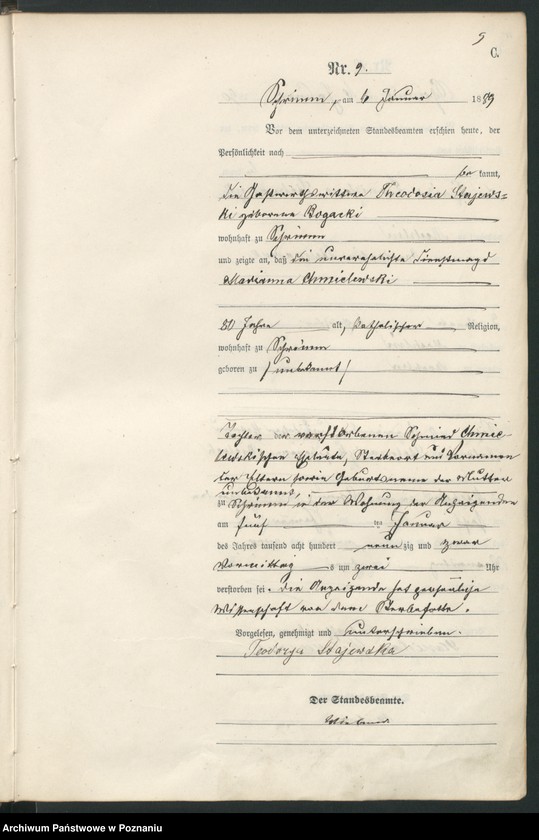 9
C.
Nr. 9.
Schrimm, am 6 Januar 1899
Vor dem unterzeichneten Standesbeamten erschien heute, der
Persönlichkeit nach
bekannt,
die Gastwirthswittwe Theodosia Stajews-
ki geborene Bogacki
wohnhaft zu Schrimm
und zeigte an, daß die unverehelichte Dienstmagd
Marianna Chmielewski
80 Jahre alt, katholischer Religion,
wohnhaft zu Schrimm
geboren zu / unbekannt /
Tochter der verstorbenen Schmied Chmie-
lewskischen Eheleute, Sterbeort und Vornamen
der Eltern sowie Geburtsname der Mutter
unbekannt,
zu Schrimm in der Wohnung der Anzeigenden
am fünf ten Januar
des Jahres tausend acht hundert neunzig und
Vormittags um zwei Uhr
verstorben sei. Die Anzeigende hat persönliche
Wissenschaft von dem Sterbefalle.
Vorgelesen, genehmigt und unterschrieben.
Teodozya Stajewska
Der Standesbeamte.
Archiwum Państwowe w Poznaniu